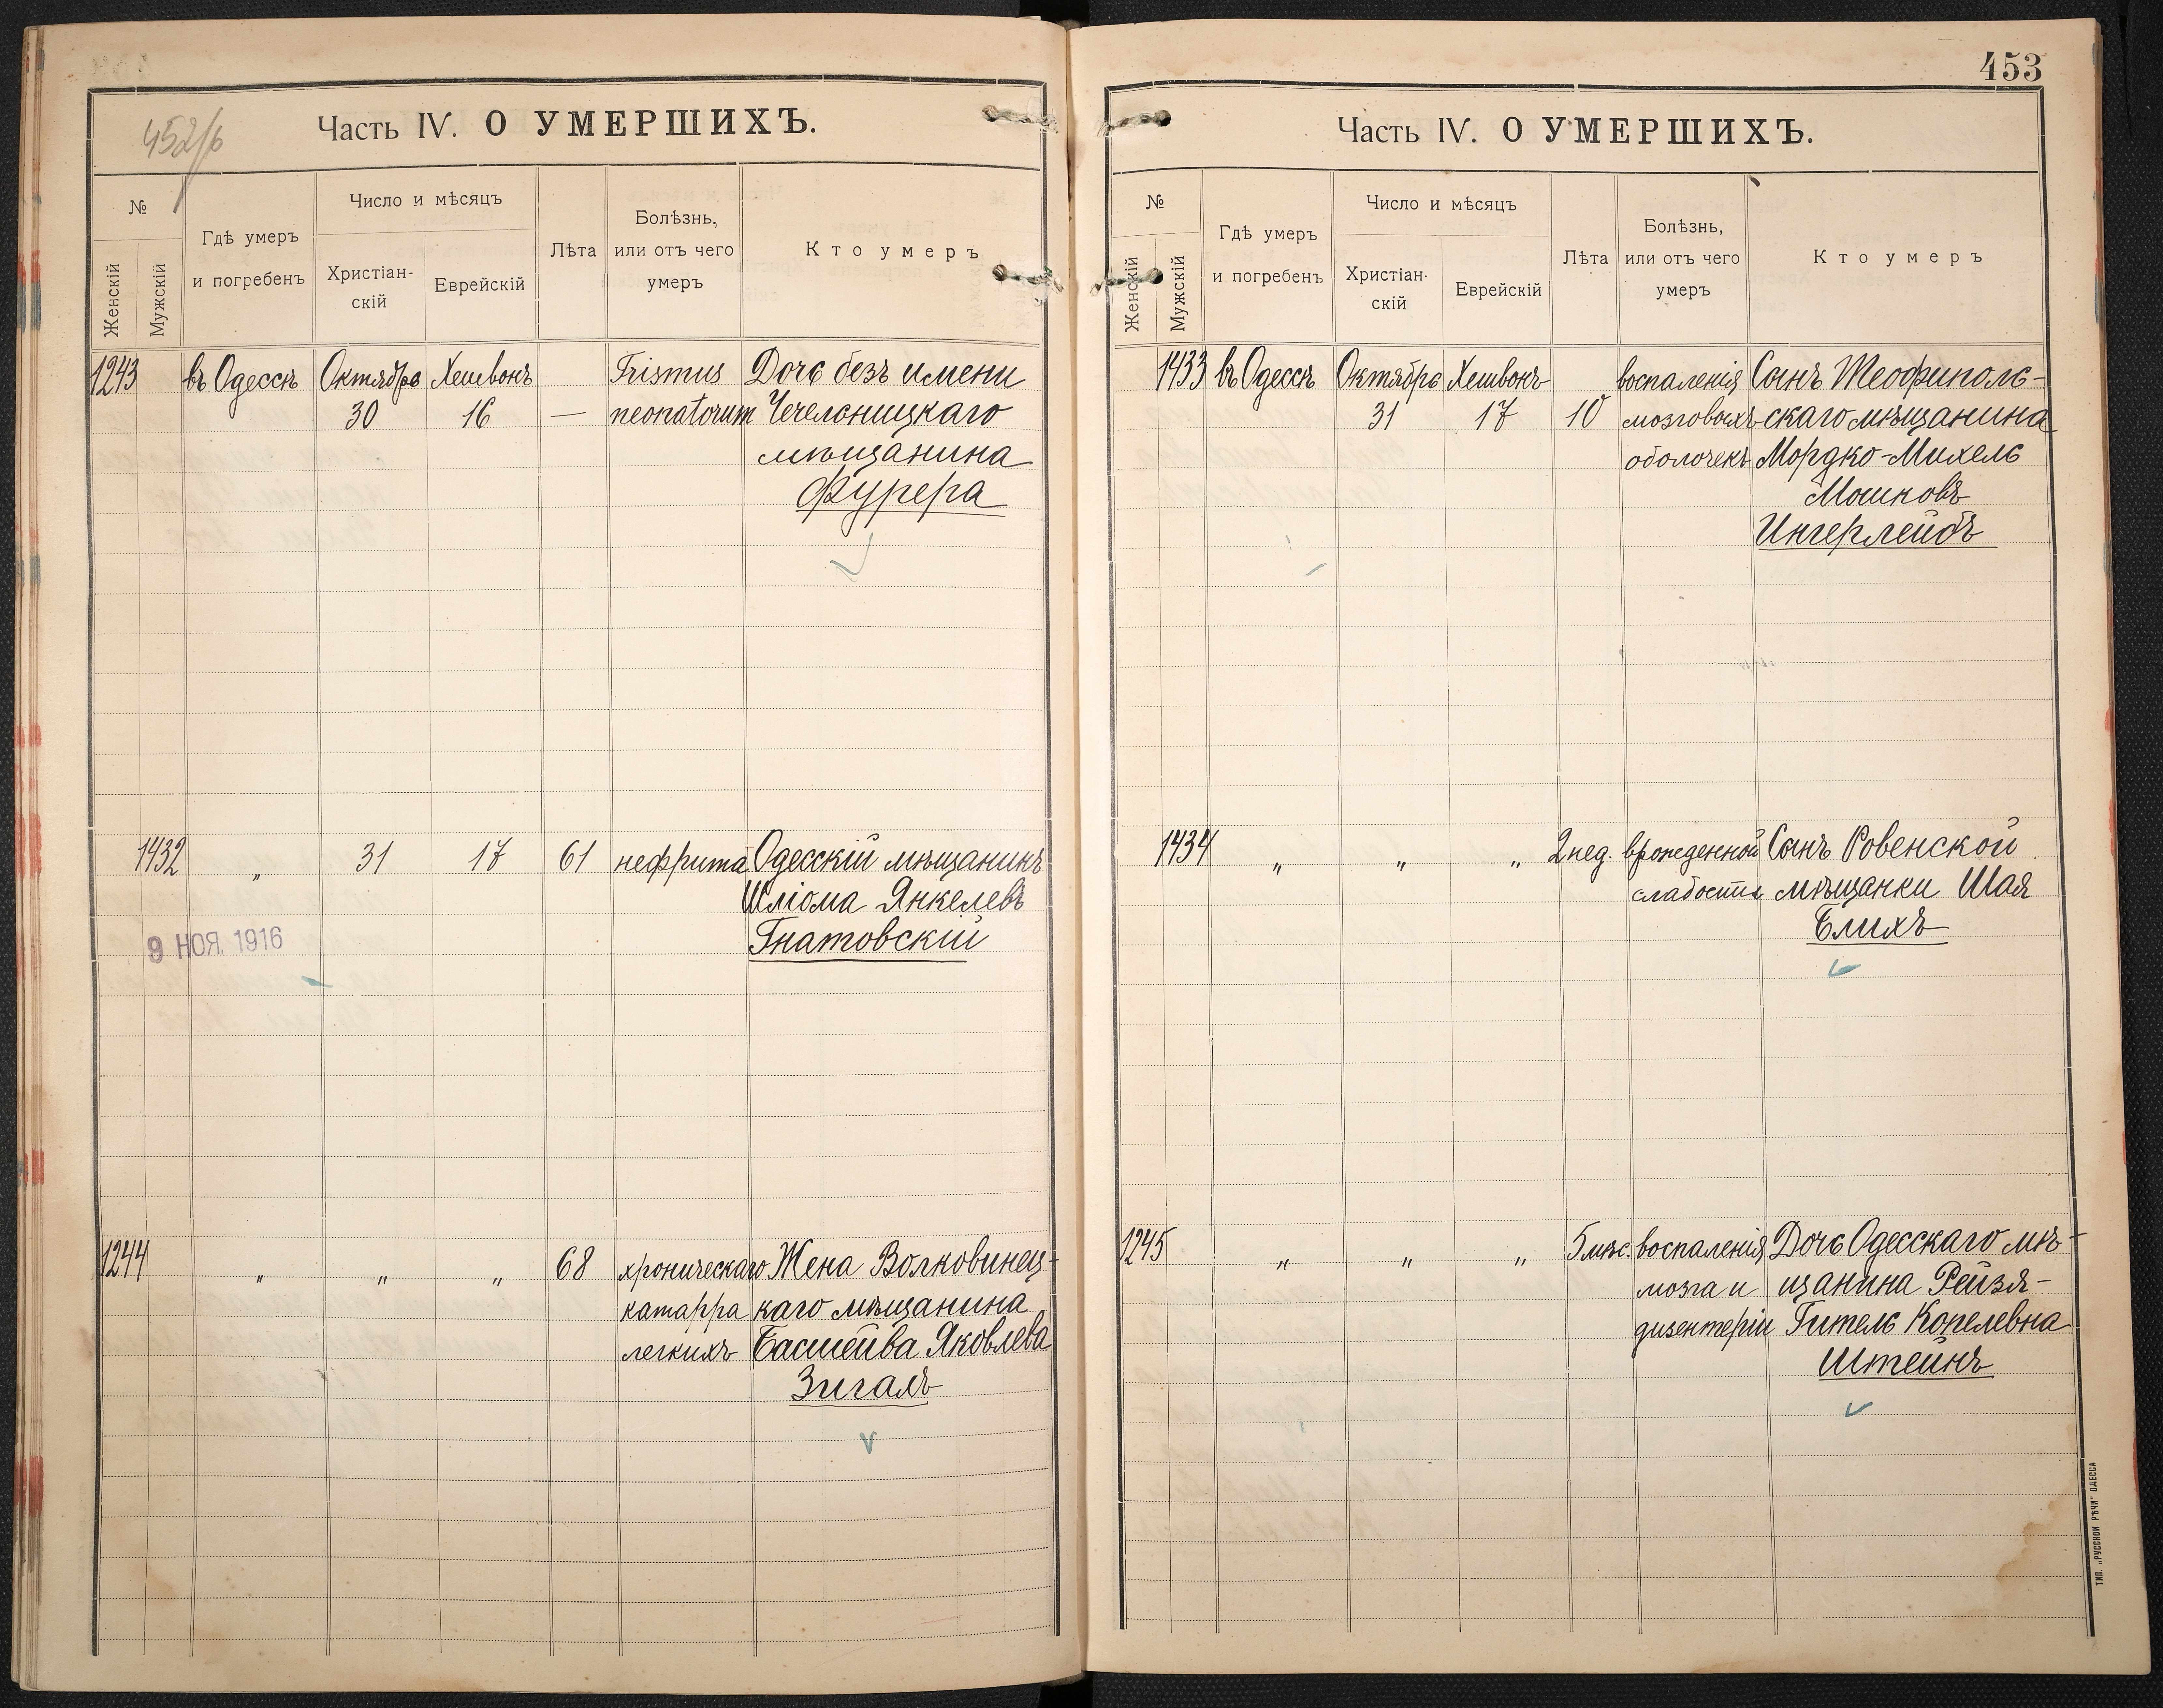 452/б
Часть IV. О УМЕРШИХЪ.
№
Женскій
Мужскій
Гдѣ умеръ
и погребенъ
Число и мѣсяцъ
Христіан-
скій
Еврейскій
Лѣта
Болѣзнь,
или отъ чего
умеръ
Кто умеръ
1243 въ Одессѣ Октября Хешвонъ Trismus Дочь безъ имени
30 16 — neonatorum Чечельницкаго
мѣщанина
Фурера
1432 „ 31 17 61 нефрита Одесскій мѣщанинъ
Шліома Янкелевъ
9 НОЯ. 1916 Гнатовскій
1244 „ „ „ 68 хроническаго Жена Волковинец-
катарра каго мѣщанина
легкихъ Басшейва Яковлева
Зигалъ
453
Часть IV. О УМЕРШИХЪ.
№
Женскій
Мужскій
Гдѣ умеръ
и погребенъ
Число и мѣсяцъ
Христіан-
скій
Еврейскій
Лѣта
Болѣзнь,
или отъ чего
умеръ
Кто умеръ
1433 въ Одессѣ Октября Хешвонъ воспаленія Сынъ Теофиполь-
31 17 10 мозговыхъ скаго мѣщанина
оболочекъ Мордко-Михель
Мошковъ
Ингерлейбъ
1434 „ „ „ 2 нед. врожденной Сынъ Ровенской
слабости мѣщанки Шая
Блихъ
1245 „ „ „ 5 мѣс. воспаленія Дочь Одесскаго мѣ-
мозга и щанина Рейзя-
дизентеріи Гитель Копелевна
Штейнъ
ТИП. „РУССКОЙ РѢЧИ“ ОДЕССА